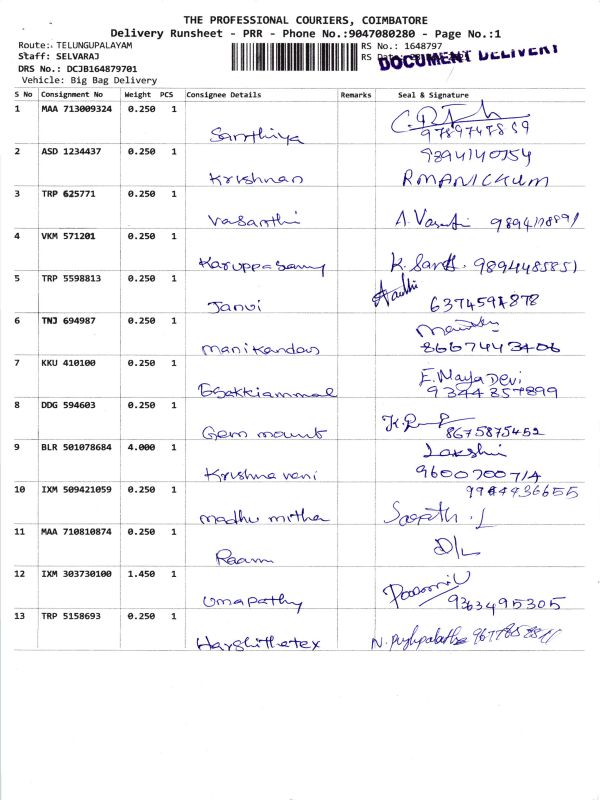 THE PROFESSIONAL COURIERS, COIMBATORE
Delivery Runsheet - PRR - Phone No.:9047080280 - Page No.:1
Route: TELUNGUPALAYAM
RS No.: 1648797
Staff: SELVARAJ
RS
DOCUMENT DELIVERY
DRS No.: DCJB164879701
Vehicle: Big Bag Delivery
S No Consignment No Weight PCS Consignee Details Remarks Seal & Signature
1 MAA 713009324 0.250 1
Santhiya 9789747859
2 ASD 1234437 0.250 1 9894140754
Krishnan RMANICKUM
3 TRP 625771 0.250 1
Vasanthi A. Vasanthi
4 VKM 571201 0.250 1
Karuppasamy K. 9894485851
5 TRP 5598813 0.250 1
Janvi 6374594878
6 TNJ 694987 0.250 1
Manikandan 8667443406
7 KKU 410100 0.250 1 E. Maya Devi
Esakkiammal 9344857899
8 DDG 594603 0.250 1
Gem mount 8675875452
9 BLR 501078684 4.000 1 Lakshmi
Krishna veni 9600700714
10 IXM 509421059 0.250 1 9944936655
Madhu mitha
11 MAA 710810874 0.250 1
Raam
12 IXM 303730100 1.450 1
Umapathy 9363495305
13 TRP 5158693 0.250 1
Harshithatex N. Pushpalatha